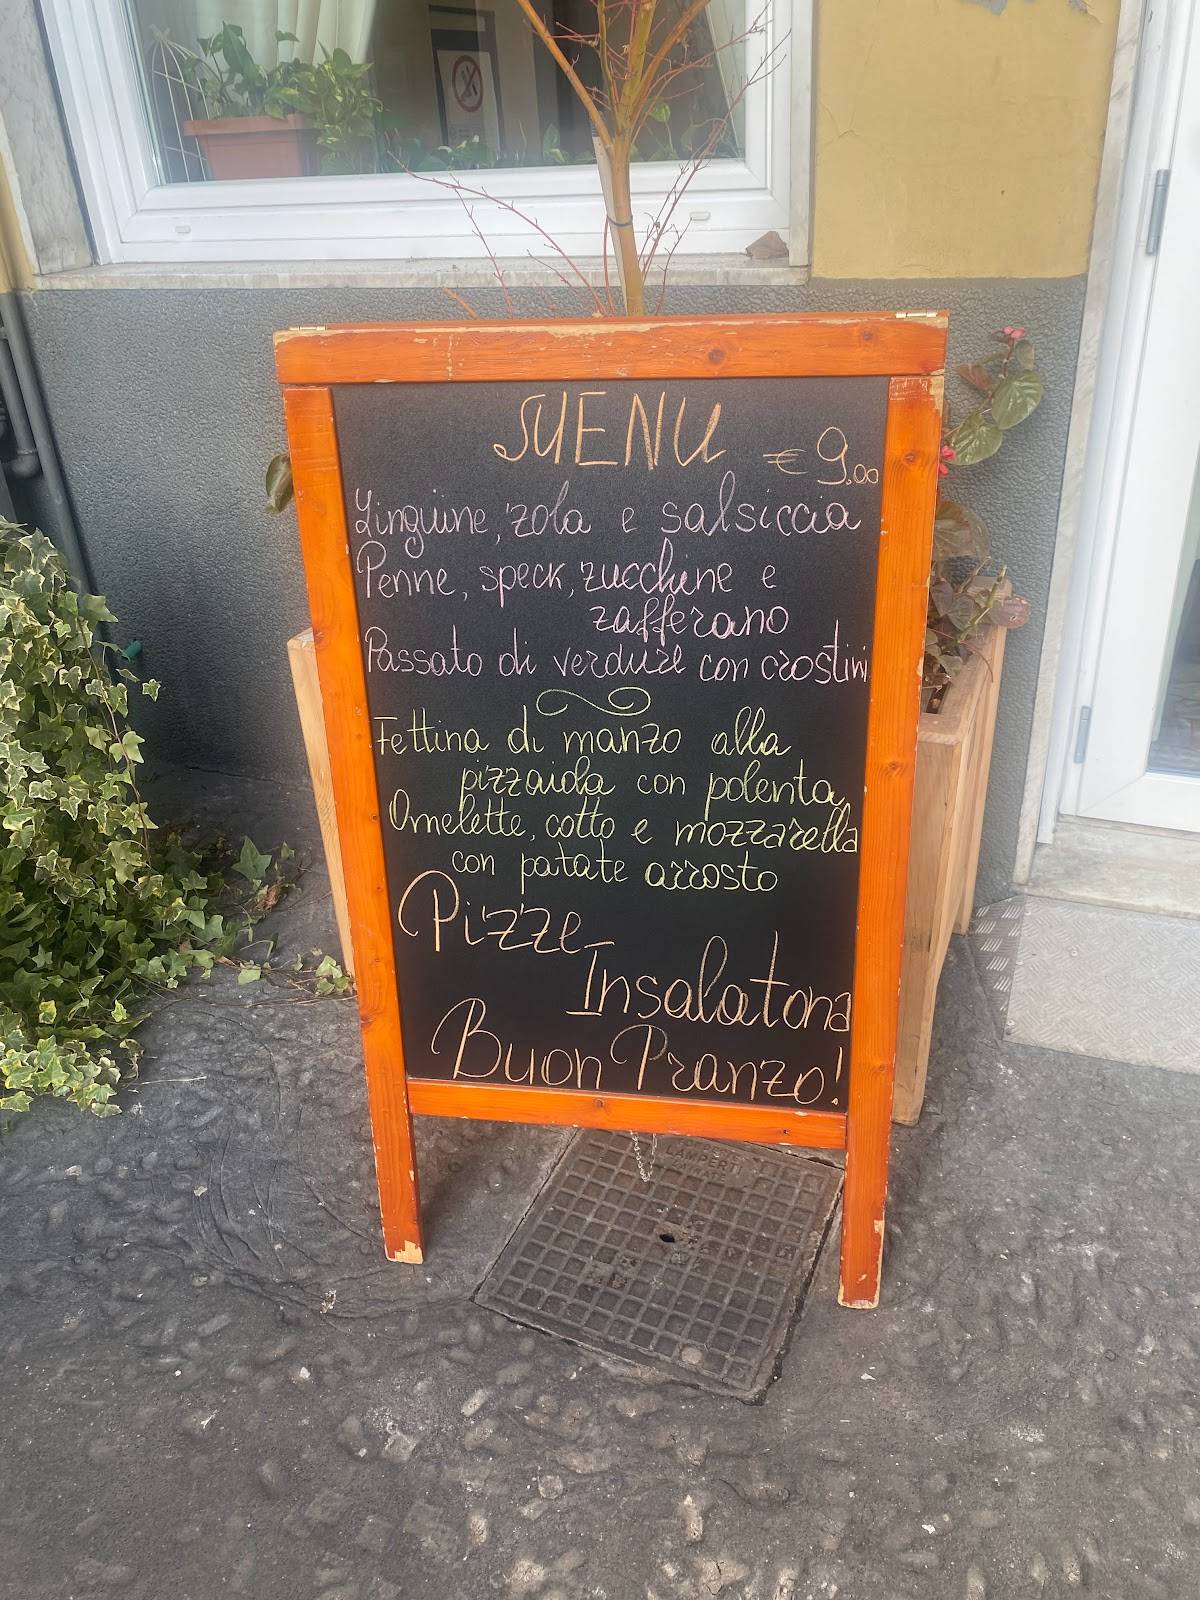 MENU
€ 9.00
Linguine, zola e salsiccia
Penne, speck, zucchine e
zafferano
Passato di verdure con crostini
Fettina di manzo alla
pizzaiola con polenta
Omelette, cotto e mozzarella
con patate arrosto
Pizze
Insalatona
Buon Pranzo!
LAMPERTI